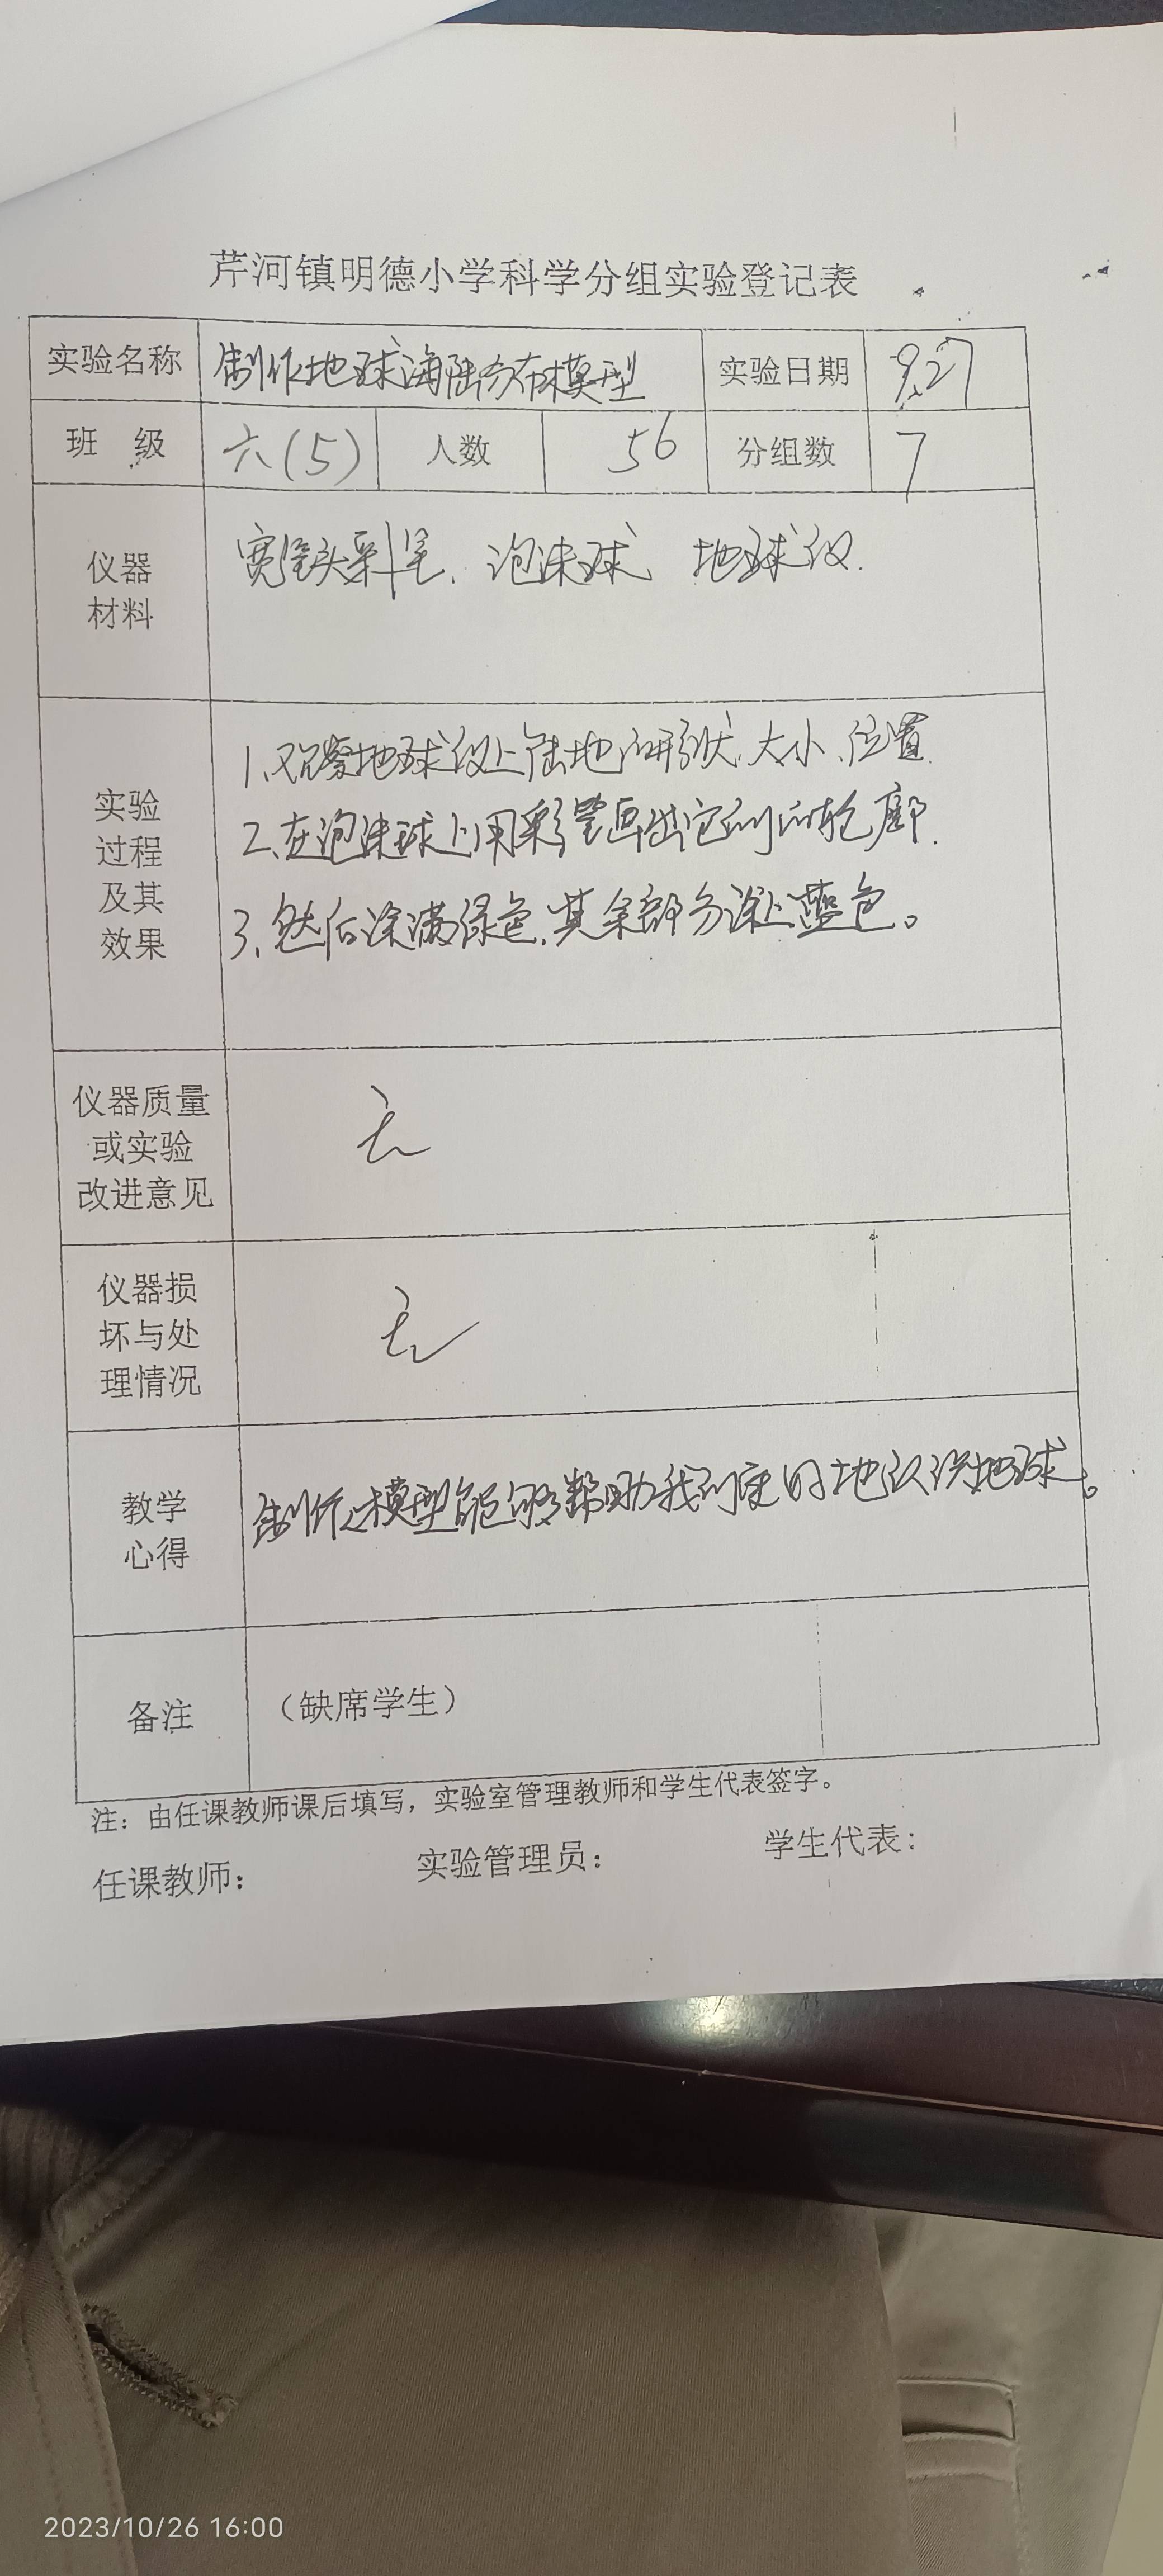 芹河镇明德小学科学分组实验登记表
实验名称 制作地球海陆分布模型 实验日期 9.27
班 级 六(5) 人数 56 分组数 7
仪器
材料
宽笔头彩笔、泡沫球、地球仪.
实验
过程
及其
效果
1、观察地球仪上陆地的形状、大小、位置.
2、在泡沫球上用彩笔画出它们的轮廓.
3、然后涂满绿色,其余部分涂上蓝色。
仪器质量
或实验
改进意见
无
仪器损
坏与处
理情况
无
教学
心得
制作模型能够帮助我们更好地认识地球。
备注 (缺席学生)
注:由任课教师课后填写,实验室管理教师和学生代表签字。
任课教师: 实验管理员: 学生代表:
2023/10/26 16:00